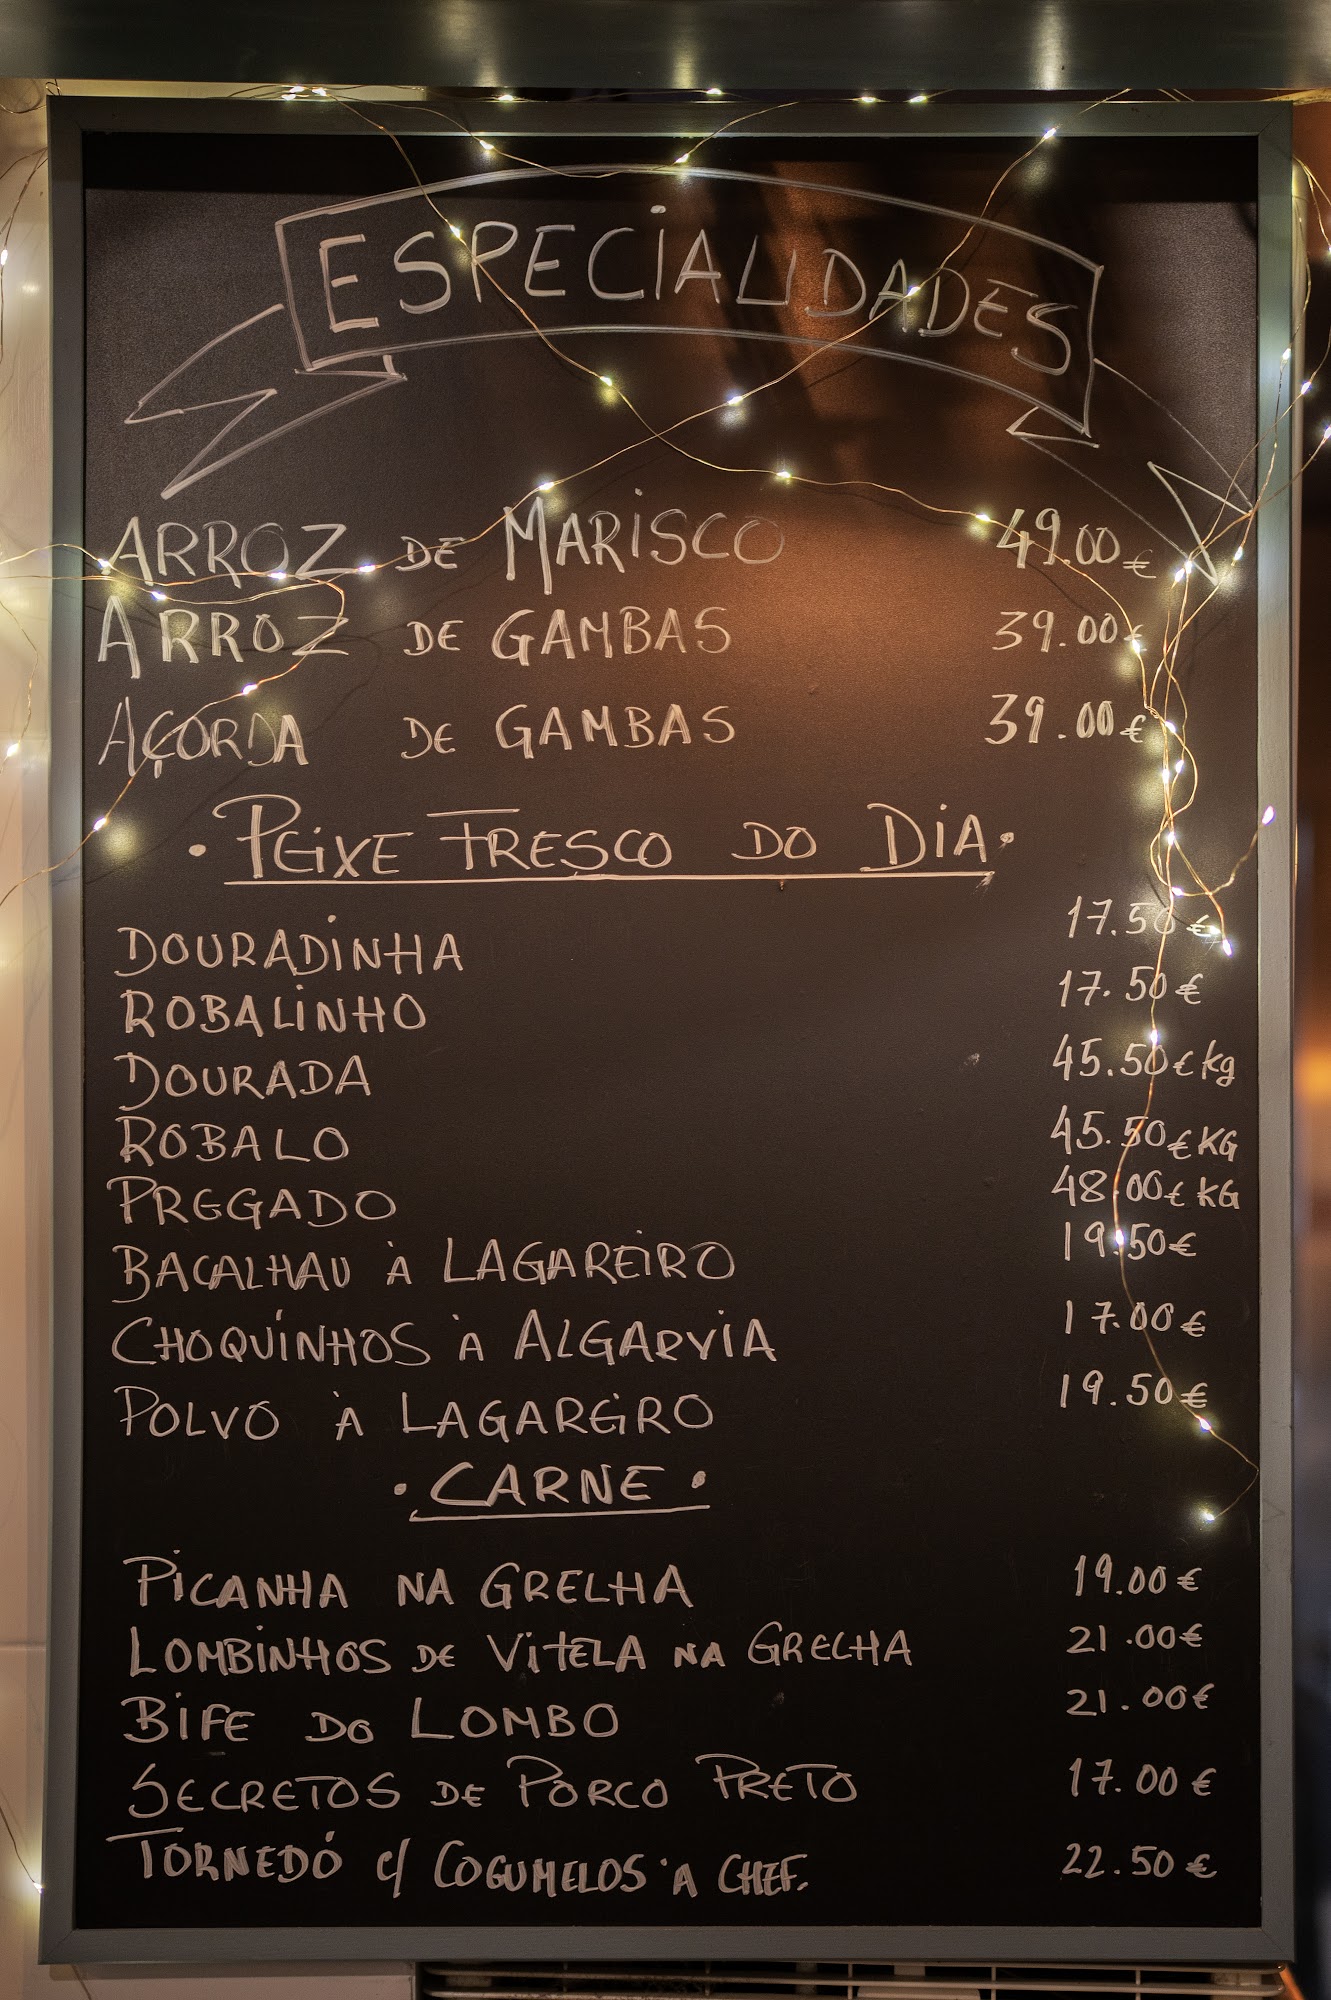 ESPECIALIDADES
ARROZ DE MARISCO 49.00€
ARROZ DE GAMBAS 39.00€
AÇORDA DE GAMBAS 39.00€
• PEIXE FRESCO DO DIA •
DOURADINHA 17.50€
ROBALINHO 17.50€
DOURADA 45.50€ kg
ROBALO 45.50€ KG
PREGADO 48.00€ KG
BACALHAU À LAGAREIRO 19.50€
CHOQUINHOS À ALGARVIA 17.00€
POLVO À LAGAREIRO 19.50€
• CARNE •
PICANHA NA GRELHA 19.00€
LOMBINHOS DE VITELA NA GRELHA 21.00€
BIFE DO LOMBO 21.00€
SECRETOS DE PORCO PRETO 17.00€
TORNEDÓ c/ COGUMELOS À CHEF. 22.50€